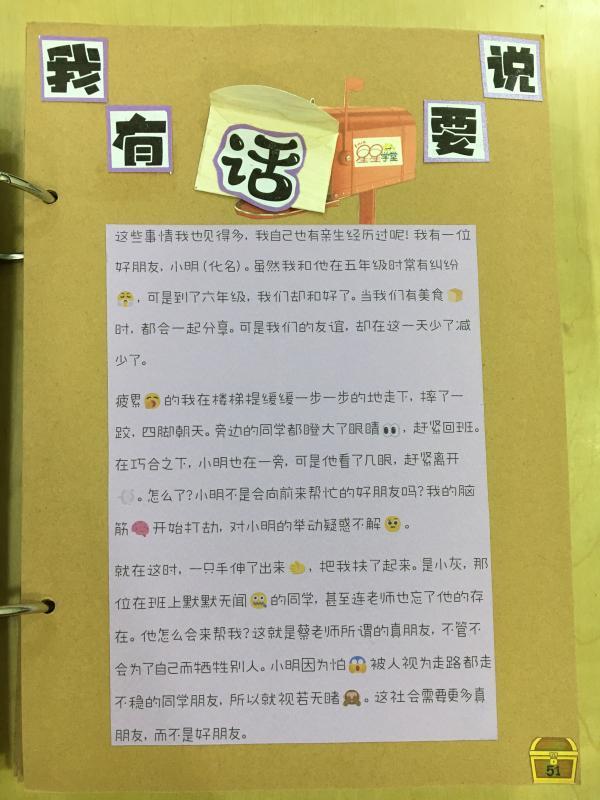 我有话要说
星星学堂
这些事情我也见得多，我自己也有亲生经历过呢！我有一位
好朋友，小明（化名）。虽然我和他在五年级时常有纠纷
😤，可是到了六年级，我们却和好了。当我们有美食🍞
时，都会一起分享。可是我们的友谊，却在这一天少了减
少了。
疲累🥱的我在楼梯提缓缓一步一步的地走下，摔了一
跤，四脚朝天。旁边的同学都瞪大了眼睛👀，赶紧回班。
在巧合之下，小明也在一旁，可是他看了几眼，赶紧离开
💨。怎么了？小明不是会向前来帮忙的好朋友吗？我的脑
筋🧠开始打劫，对小明的举动疑惑不解🥺。
就在这时，一只手伸了出来🫱，把我扶了起来。是小灰，那
位在班上默默无闻🤐的同学，甚至连老师也忘了他的存
在。他怎么会来帮我？这就是蔡老师所谓的真朋友，不管不
会为了自己而牺牲别人。小明因为怕😱被人视为走路都走
不稳的同学朋友，所以就视若无睹🙈。这社会需要更多真
朋友，而不是好朋友。
51